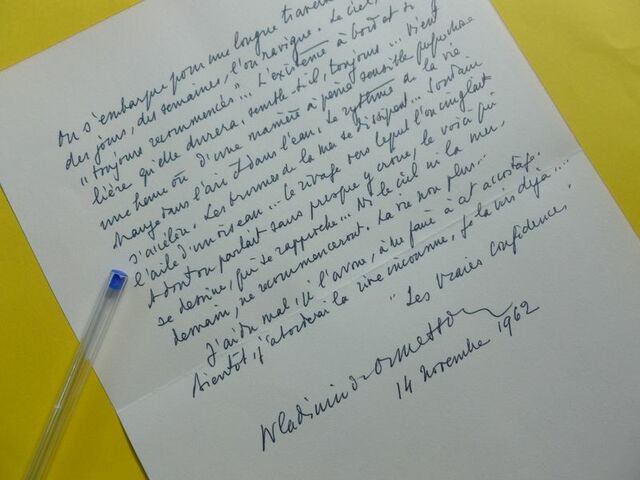 On s'embarque pour une longue traversée
des jours, des semaines, l'on navigue. Le ciel,
"toujours recommencés"... L'existence à bord est si
lière qu'elle durera, semble-t-il, toujours... Vient
une heure où d'une manière à peine sensible quelque chose
change dans l'air et dans l'eau. Le rythme de la vie
s'accélère. Les brumes de la mer se dissipent... Soudain
l'aile d'un oiseau... Le rivage vers lequel l'on cinglait
et dont on parlait sans presque y croire, le voici qui
se dessine, qui se rapproche... Ni le ciel ni la mer,
demain, ne recommenceront. La vie non plus...
J'ai du mal, je l'avoue, à me faire à cet accostage.
Bientôt j'aborderai la rive inconnue. Je la vis déjà...
"Les Vraies Confidences,
Wladimir d'Ormesson
14 novembre 1962